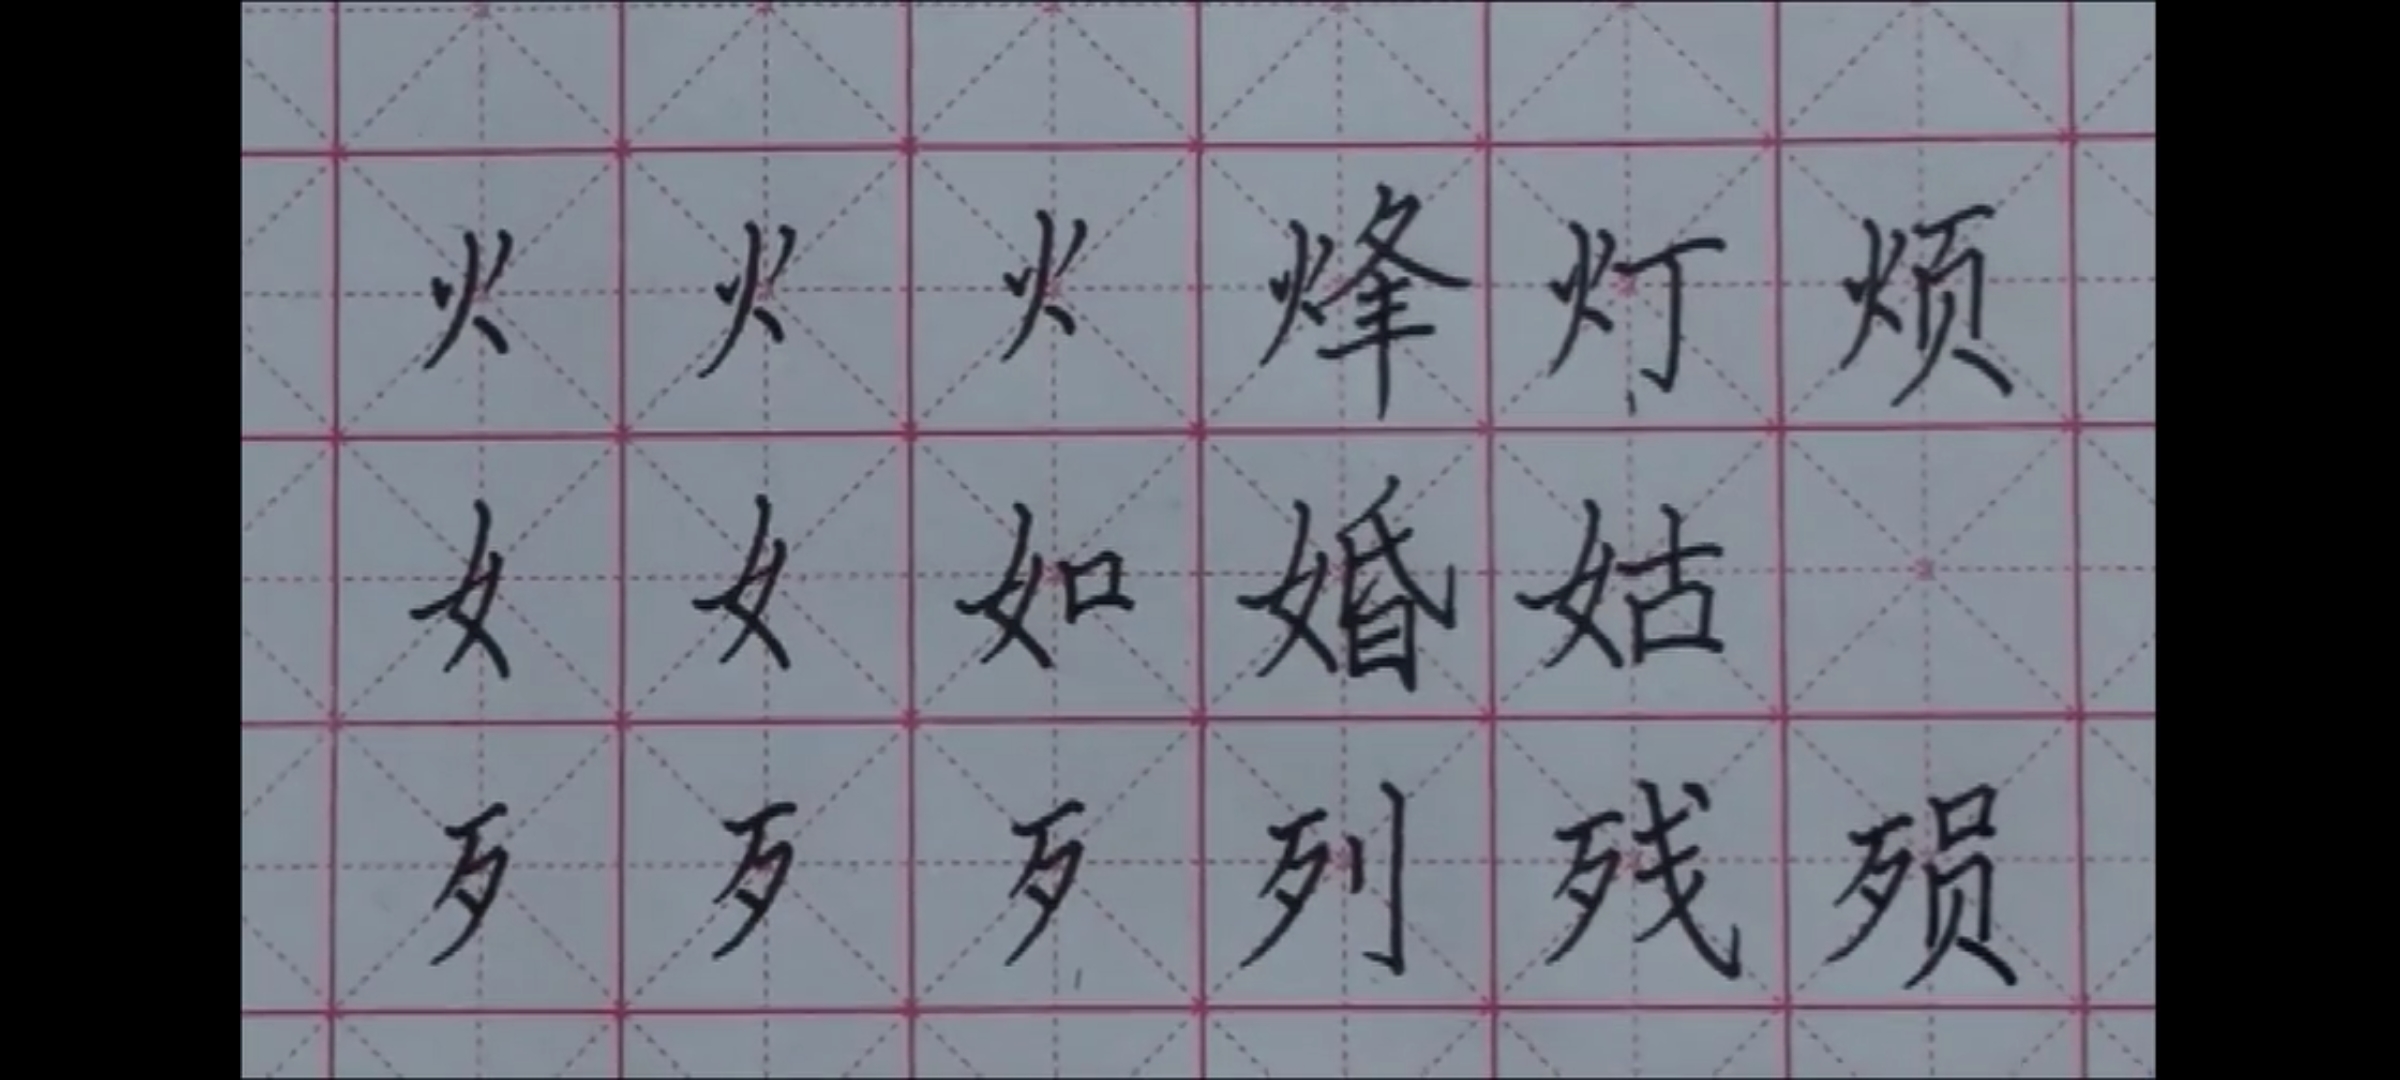 火火火烽灯烦
女女如婚姑
歹歹歹列残殒